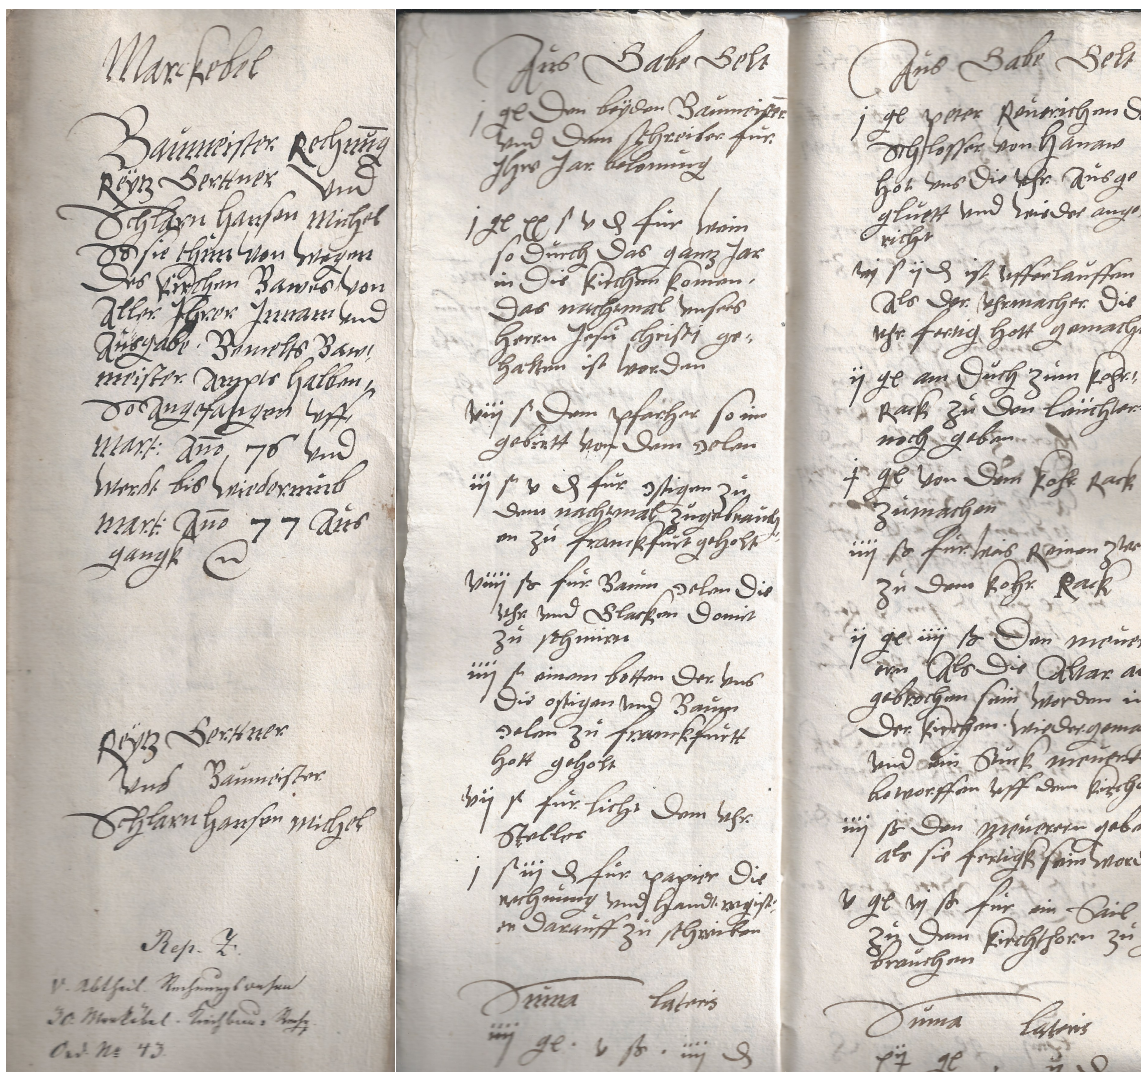 Marckebel
Baumeister Rechnug
Reÿtz Gerttner Vnd
Schlarn Hansen Michel
So sie thun von wegen
des Kirchen Bawes von
Aller Ihrer Innam vnd
Ausgabe Bemelts Baw
meister Ampts halben,
So angefangen vff
Mart: Año 76 vnd
werdt bis wiederumb
Mart: Año 77 Aus
gangk
Reÿtz Gerttner
vnd Baumeister
Schlarn Hansen Michel
Rep. Z.
V. Abtheil. Rechnungswesen
30. Merkibel. Kirchbau-
Ord. No 43.
Aus Gabe Gelt
j gl Den beÿden Baumeister
vnd dem schreiber für
Ihre Jar belonung
j gl xx ß v d für wein
so durch das gantz Jar
in die Kirchen komen,
das nachtmal vnsers
herrn Jesu christi ge,
halten ist worden
viij ß dem pfarher so im
gebürtt von dem
iij ß v d für ostigen zu
dem nachtmal zugebrauch
en zu franckfurt geholt
viiij ß für Baum oelen die
vhr vnd Glacken domit
zu schmiren
iiij ß einem botten der vns
die ostigen vnd Baum
oelen zu franckfurtt
hott geholt
vij ß für licht dem vhr
Steller
j ß iij d für papier die
rechnung vnd handt regist,
er darauff zu schreiben
Suma lateris
iiij gl. v ß. iiij d
Aus Gabe Gelt
j gl peter Reuerichen d
Schlosser von Hanaw
hot vns die vhr Ausge
gluett vnd wieder ange
richt
vj ß ij d ist vfferlauffen
Als der vhrmacher die
vhr fertig hott gemacht
ij gl am duch zum kohr,
Rack zu den
noch geben
j gl von dem kohr Rack
zumachen
iiij ß für
zu dem kohr Rack
ij gl iiij ß den meuer
ern Als die Altar
gebrochen sein worden
der kirchen wiedergema
vnd ein Stuck meuer
beworffen vff dem kirch
iiij ß den meuerern geb
als sie fertigk sein word
v gl vj ß für ein Sail
zu dem kirchthorn zu
brauchen
Suma lateris
gl d